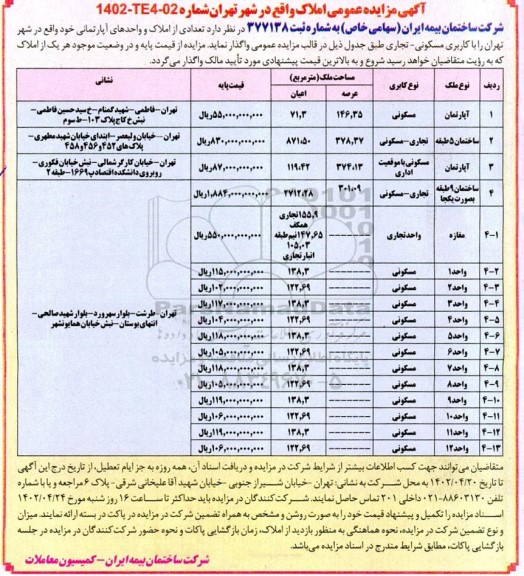 آگهی مزایده عمومی املاک واقع در شهر تهران شماره 02-TE4-1402
شرکت ساختمان بیمه ایران (سهامی خاص) به شماره ثبت ۳۷۷۱۳۸ در نظر دارد تعدادی از املاک و واحدهای آپارتمانی خود واقع در شهر
تهران را با کاربری مسکونی- تجاری طبق جدول ذیل در قالب مزایده عمومی واگذار نماید. مزایده از قیمت پایه و در وضعیت موجود هر یک از املاک
که به رؤیت متقاضیان خواهد رسید شروع و به بالاترین قیمت پیشنهادی مورد تأیید مالک واگذار می‌گردد.
ردیف نوع ملک نوع کاربری مساحت ملک (مترمربع) عرصه اعیان قیمت پایه نشانی
۱ آپارتمان مسکونی ۱۴۶٫۳۵ ۷۱٫۳ ۵۵,۰۰۰,۰۰۰,۰۰۰ریال تهران-فاطمی-شهید گمنام-خ سید حسین فاطمی- نبش خ کاج پلاک ۱۰۳-ط سوم
۲ ساختمان ۵ طبقه تجاری-مسکونی ۳۷۸٫۳۷ ۸۷۱٫۵۰ ۸۳۰,۰۰۰,۰۰۰,۰۰۰ریال تهران-خیابان ولیعصر-ابتدای خیابان شهید مطهری- پلاک های ۴۵۲ و ۴۵۶ و ۴۵۸
۳ آپارتمان مسکونی با موقعیت اداری ۳۷۴٫۱۳ ۱۱۹٫۴۲ ۸۷,۰۰۰,۰۰۰,۰۰۰ریال تهران-خیابان کارگر شمالی-نبش خیابان فکوری- روبروی دانشکده اقتصاد پ ۱۶۶۹-طبقه ۲
۴ ساختمان ۹ طبقه بصورت یکجا تجاری-مسکونی ۳۰۱٫۰۹ ۲۷۱۲٫۲۸ ۱,۸۸۴,۰۰۰,۰۰۰,۰۰۰ریال
تهران-طرشت-بلوار سهرورد-بلوار شهید صالحی- انتهای بوستان-نبش خیابان همایونشهر
۴-۱ مغازه واحد تجاری ------- ۱۵۵٫۹ تجاری همکف ۱۴۷٫۶۵ نیم طبقه ۱۰۵٫۰۳ انبار تجاری ۵۵۰,۰۰۰,۰۰۰,۰۰۰ریال
۴-۲ واحد ۱ مسکونی ------- ۱۳۸٫۳ ۱۱۵,۰۰۰,۰۰۰,۰۰۰ریال
۴-۳ واحد ۲ مسکونی ------- ۱۲۲٫۶۹ ۱۰۲,۰۰۰,۰۰۰,۰۰۰ریال
۴-۴ واحد ۳ مسکونی ------- ۱۳۸٫۳ ۱۱۷,۰۰۰,۰۰۰,۰۰۰ریال
۴-۵ واحد ۴ مسکونی ------- ۱۲۲٫۶۹ ۱۰۴,۰۰۰,۰۰۰,۰۰۰ریال
۴-۶ واحد ۵ مسکونی ------- ۱۳۸٫۳ ۱۱۸,۰۰۰,۰۰۰,۰۰۰ریال
۴-۷ واحد ۶ مسکونی ------- ۱۲۲٫۶۹ ۱۰۵,۰۰۰,۰۰۰,۰۰۰ریال
۴-۸ واحد ۷ مسکونی ------- ۱۳۸٫۳ ۱۱۸,۰۰۰,۰۰۰,۰۰۰ریال
۴-۹ واحد ۸ مسکونی ------- ۱۲۲٫۶۹ ۱۰۵,۰۰۰,۰۰۰,۰۰۰ریال
۴-۱۰ واحد ۹ مسکونی ------- ۱۳۸٫۳ ۱۱۹,۰۰۰,۰۰۰,۰۰۰ریال
۴-۱۱ واحد ۱۰ مسکونی ------- ۱۲۲٫۶۹ ۱۰۶,۰۰۰,۰۰۰,۰۰۰ریال
۴-۱۲ واحد ۱۱ مسکونی ------- ۱۳۸٫۳ ۱۱۹,۰۰۰,۰۰۰,۰۰۰ریال
۴-۱۳ واحد ۱۲ مسکونی ------- ۱۲۲٫۶۹ ۱۰۶,۰۰۰,۰۰۰,۰۰۰ریال
متقاضیان می‌توانند جهت کسب اطلاعات بیشتر از شرایط شرکت در مزایده و دریافت اسناد آن، همه روزه به جز ایام تعطیل، از تاریخ درج این آگهی
تا تاریخ ۱۴۰۲/۰۴/۲۰ به محل شرکت به نشانی: تهران-خیابان شیراز جنوبی-خیابان شهید آقا علیخانی شرقی- پلاک ۶ مراجعه و یا با شماره
تلفن ۸۸۶۰۳۱۳۰-۰۲۱ داخلی ۲۰۱ تماس حاصل نمایند. شرکت کنندگان در مزایده باید حداکثر تا ساعت ۱۶ روز شنبه مورخ ۱۴۰۲/۰۴/۲۴
اسناد مزایده را تکمیل و پیشنهاد قیمت خود را به صورت روشن و مشخص به همراه تضمین شرکت در مزایده در پاکت در بسته ارائه نمایند. میزان
و نوع تضمین شرکت در مزایده، نحوه هماهنگی به منظور بازدید از املاک، زمان بازگشایی پاکات و نحوه حضور شرکت کنندگان در مزایده در جلسه
بازگشایی پاکات، مطابق شرایط مندرج در اسناد مزایده می‌باشد.
شرکت ساختمان بیمه ایران - کمیسیون معاملات